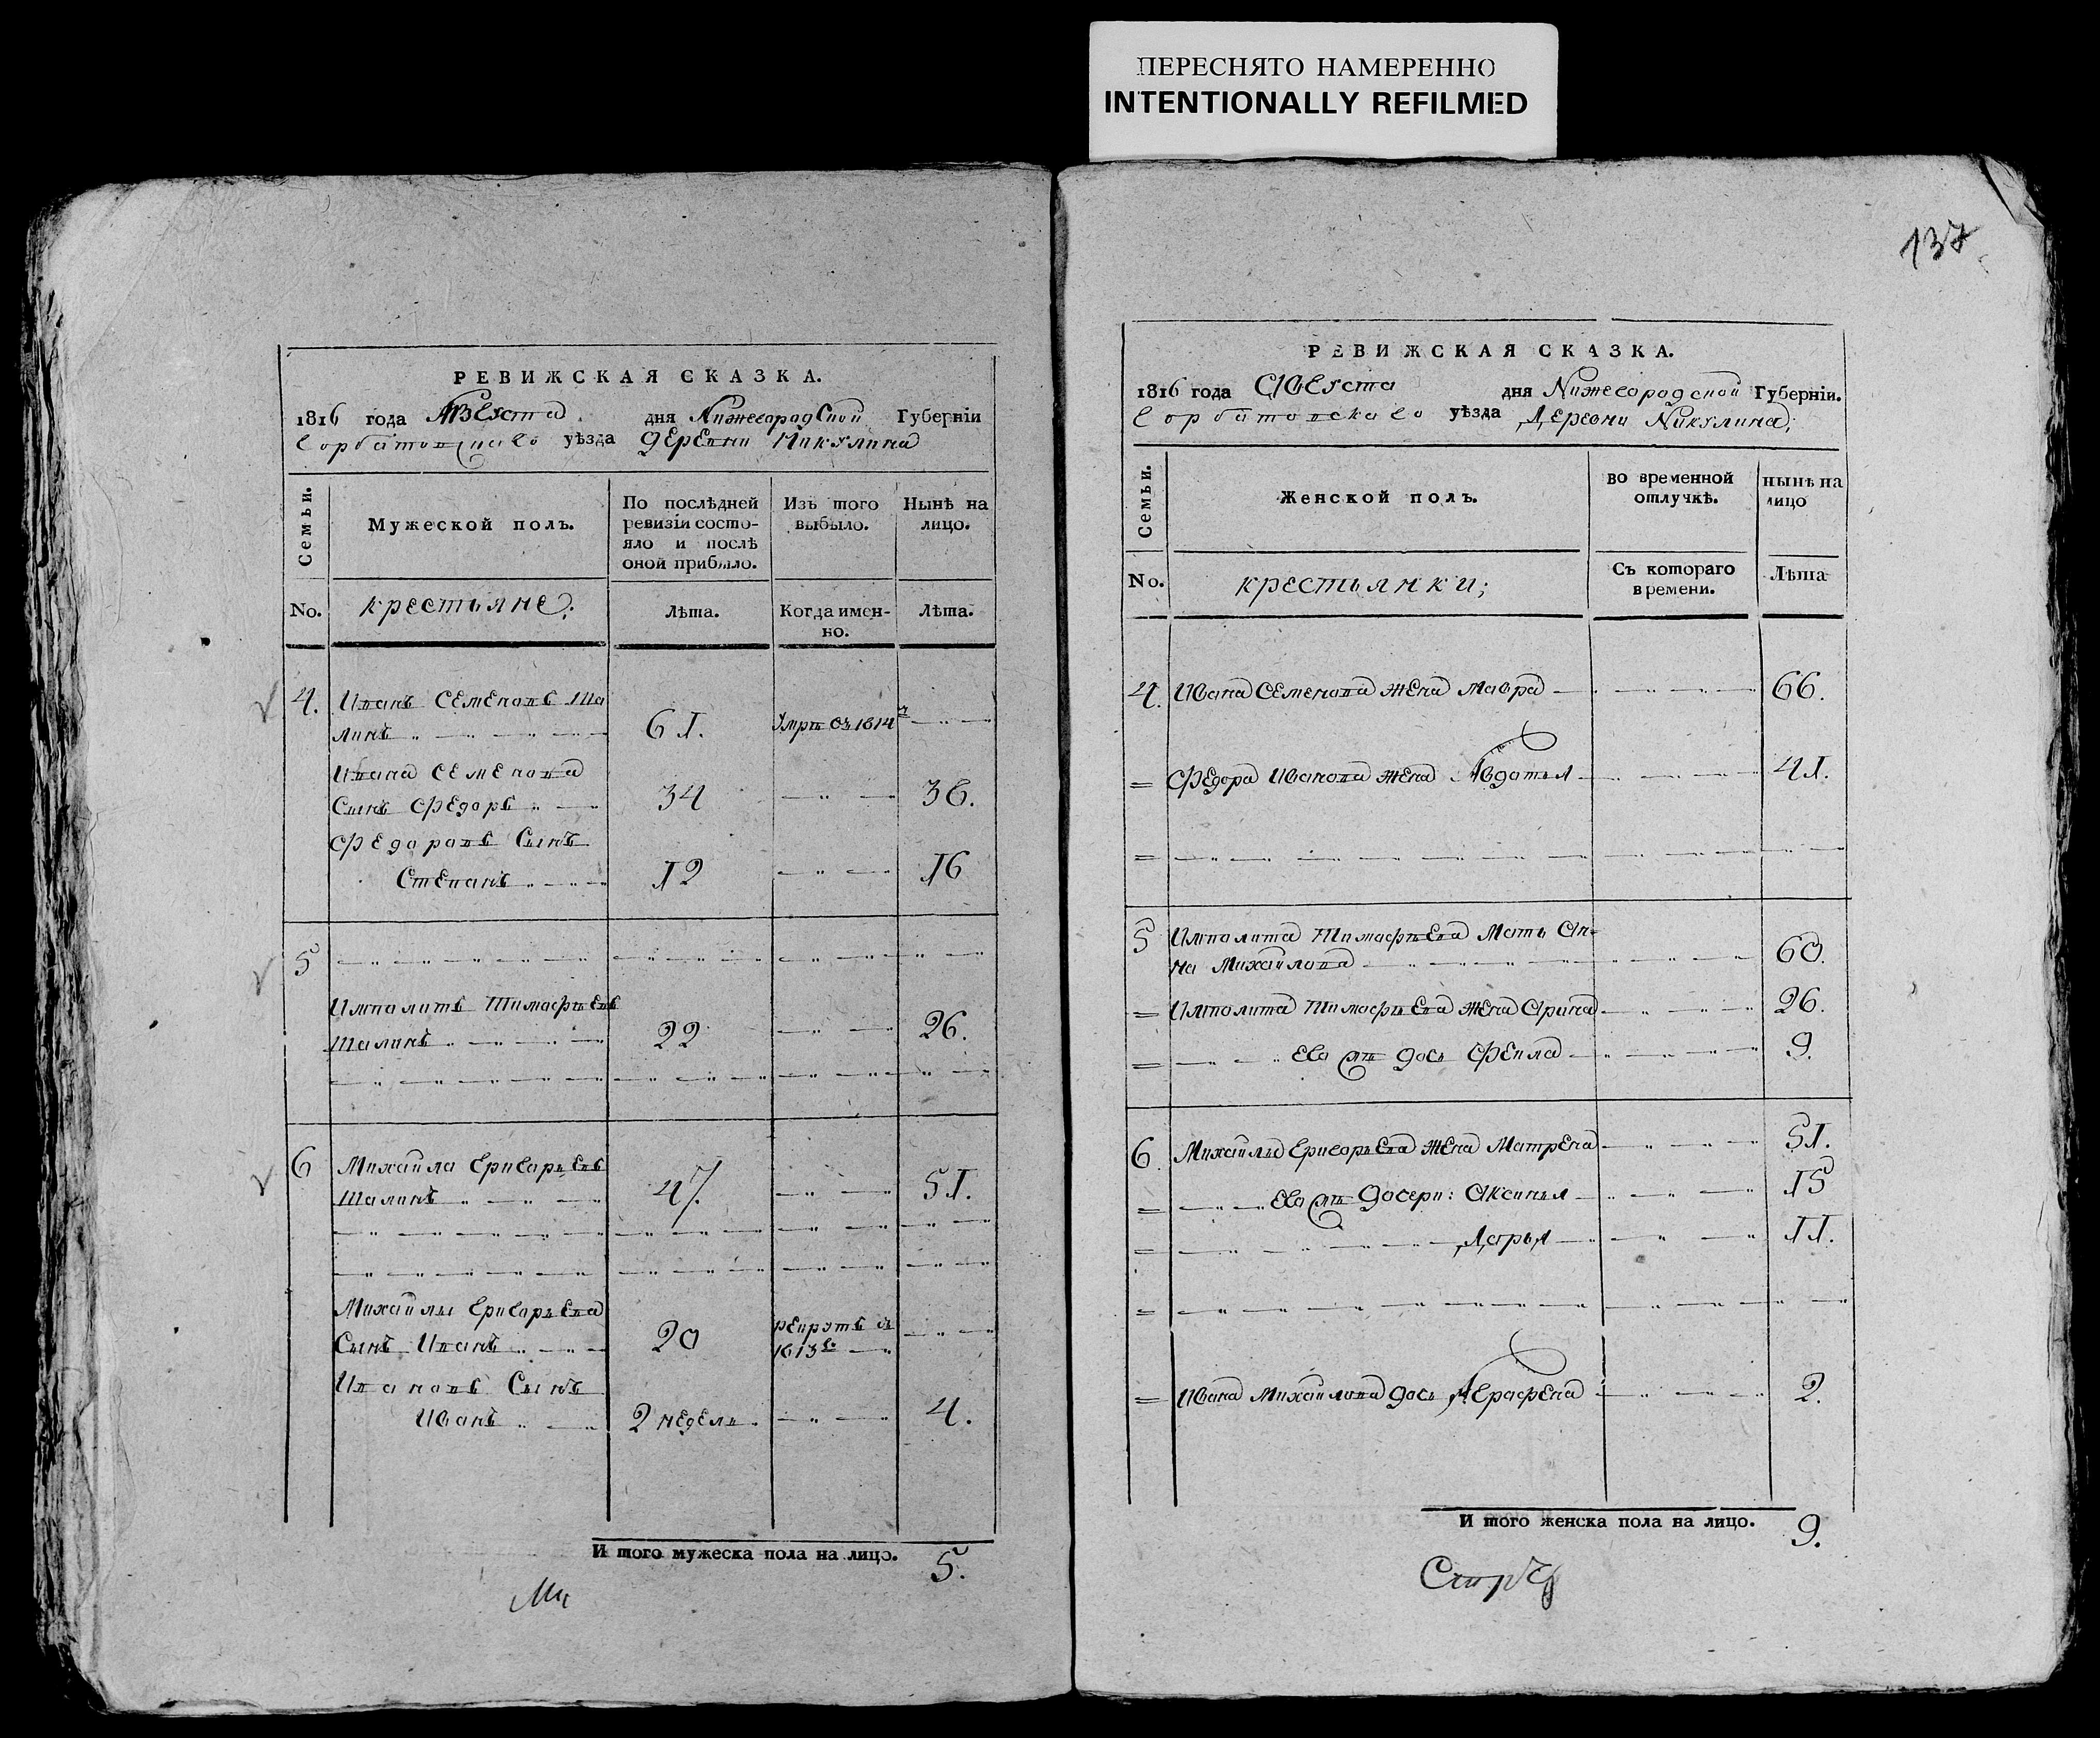 ПЕРЕСНЯТО НАМЕРЕННО
INTENTIONALLY REFILMED
137
РЕВИЖСКАЯ СКАЗКА.
1816 года Августа дня Нижегородской Губерніи
Горбатовскаго уѣзда деревни Никулина
Семьи.
Мужеской полъ.
По послѣдней
ревизіи состо-
яло и послѣ
оной прибыло.
Изъ того
выбыло.
Нынѣ на
лицо.
No.
крестьяне;
Лѣта.
Когда имен-
но.
Лѣта.
4. Иванъ Семеновъ Ша
линъ 61. Умре въ 1814
Ивана Семенова
Сынъ Федоръ 34 38.
Федоровъ Сынъ
Степанъ 12 16
5
Имполитъ Тимофѣевъ
Шалинъ 22 26.
6 Михайла Григорьевъ
Шалинъ 47. 51.
Михайлы Григорьева
Сынъ Иванъ 20 рекрутъ въ
1813 г.
Ивановъ Сынъ
Иванъ 2 недели 4.
И того мужеска пола на лицо. 5.
РЕВИЖСКАЯ СКАЗКА.
1816 года Августа дня Нижегородской Губерніи.
Горбатовскаго уѣзда Деревни Никулина;
Семьи.
Женской полъ.
во временной
отлучкѣ.
нынѣ на
лицо
No.
крестьянки;
Съ котораго
времени.
Лѣта
4. Ивана Семенова жена Мавра 66.
= Федора Иванова жена Авдотья 41.
=
5 Имполита Тимофѣева Мать Ан-
на Михайлова 60.
= Имполита Тимофѣева жена Арина 26.
= Его же дочь Фекла 9.
6. Михайлы Григорьева жена Матрена 51.
= Его же дочери: Аксинья 15
= Дарья 11.
=
= Ивана Михайлова дочь Аграфена 2.
И того женска пола на лицо. 9.